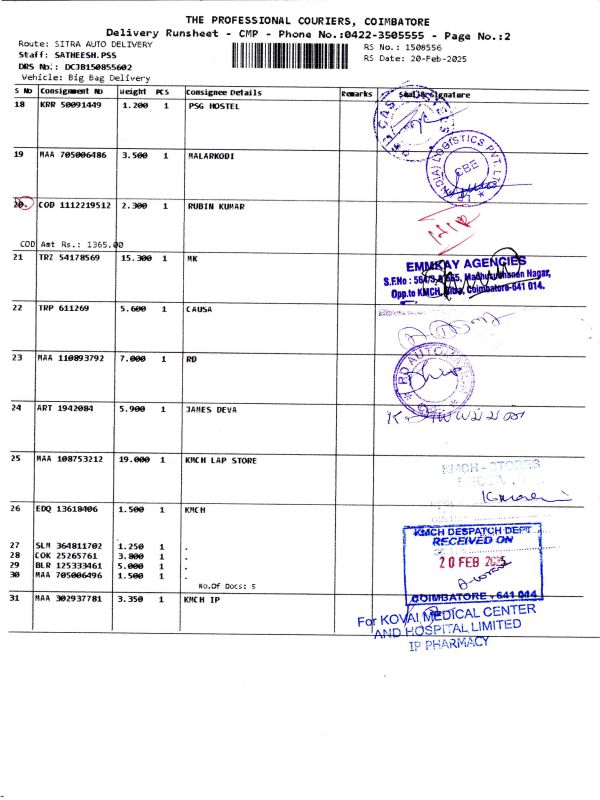 THE PROFESSIONAL COURIERS, COIMBATORE
Delivery Runsheet - CMP - Phone No.:0422-3505555 - Page No.:2
Route: SITRA AUTO DELIVERY
RS No.: 1508556
Staff: SATHEESH.PSS
RS Date: 20-Feb-2025
DRS No.: DCJB150855602
Vehicle: Big Bag Delivery
S No Consignment No Weight PCS Consignee Details Remarks Seal & Signature
18 KRR 50091449 1.200 1 PSG HOSTEL
19 MAA 705006486 3.500 1 MALARKODI
(INDIA) LOGISTICS PVT. LTD
CBE
20 COD 1112219512 2.300 1 RUBIN KUMAR
COD Amt Rs.: 1365.00
21 TRZ 54178569 15.300 1 MK
EMMKAY AGENCIES
Opp.to KMCH, Coimbatore-641 014.
22 TRP 611269 5.600 1 CAUSA
23 MAA 110893792 7.000 1 RD
RD AUTO
24 ART 1942084 5.900 1 JAMES DEVA
25 MAA 108753212 19.000 1 KMCH LAP STORE
KMCH - STORES
26 EDQ 13618406 1.500 1 KMCH
27 SLM 364811702 1.250 1 .
28 COK 25265761 3.800 1 .
29 BLR 125333461 5.000 1 .
30 MAA 705006496 1.500 1 .
No.Of Docs: 5
KMCH DESPATCH DEPT
RECEIVED ON
20 FEB 2025
COIMBATORE - 641 014
31 MAA 302937781 3.350 1 KMCH IP
For KOVAI MEDICAL CENTER
AND HOSPITAL LIMITED
IP PHARMACY